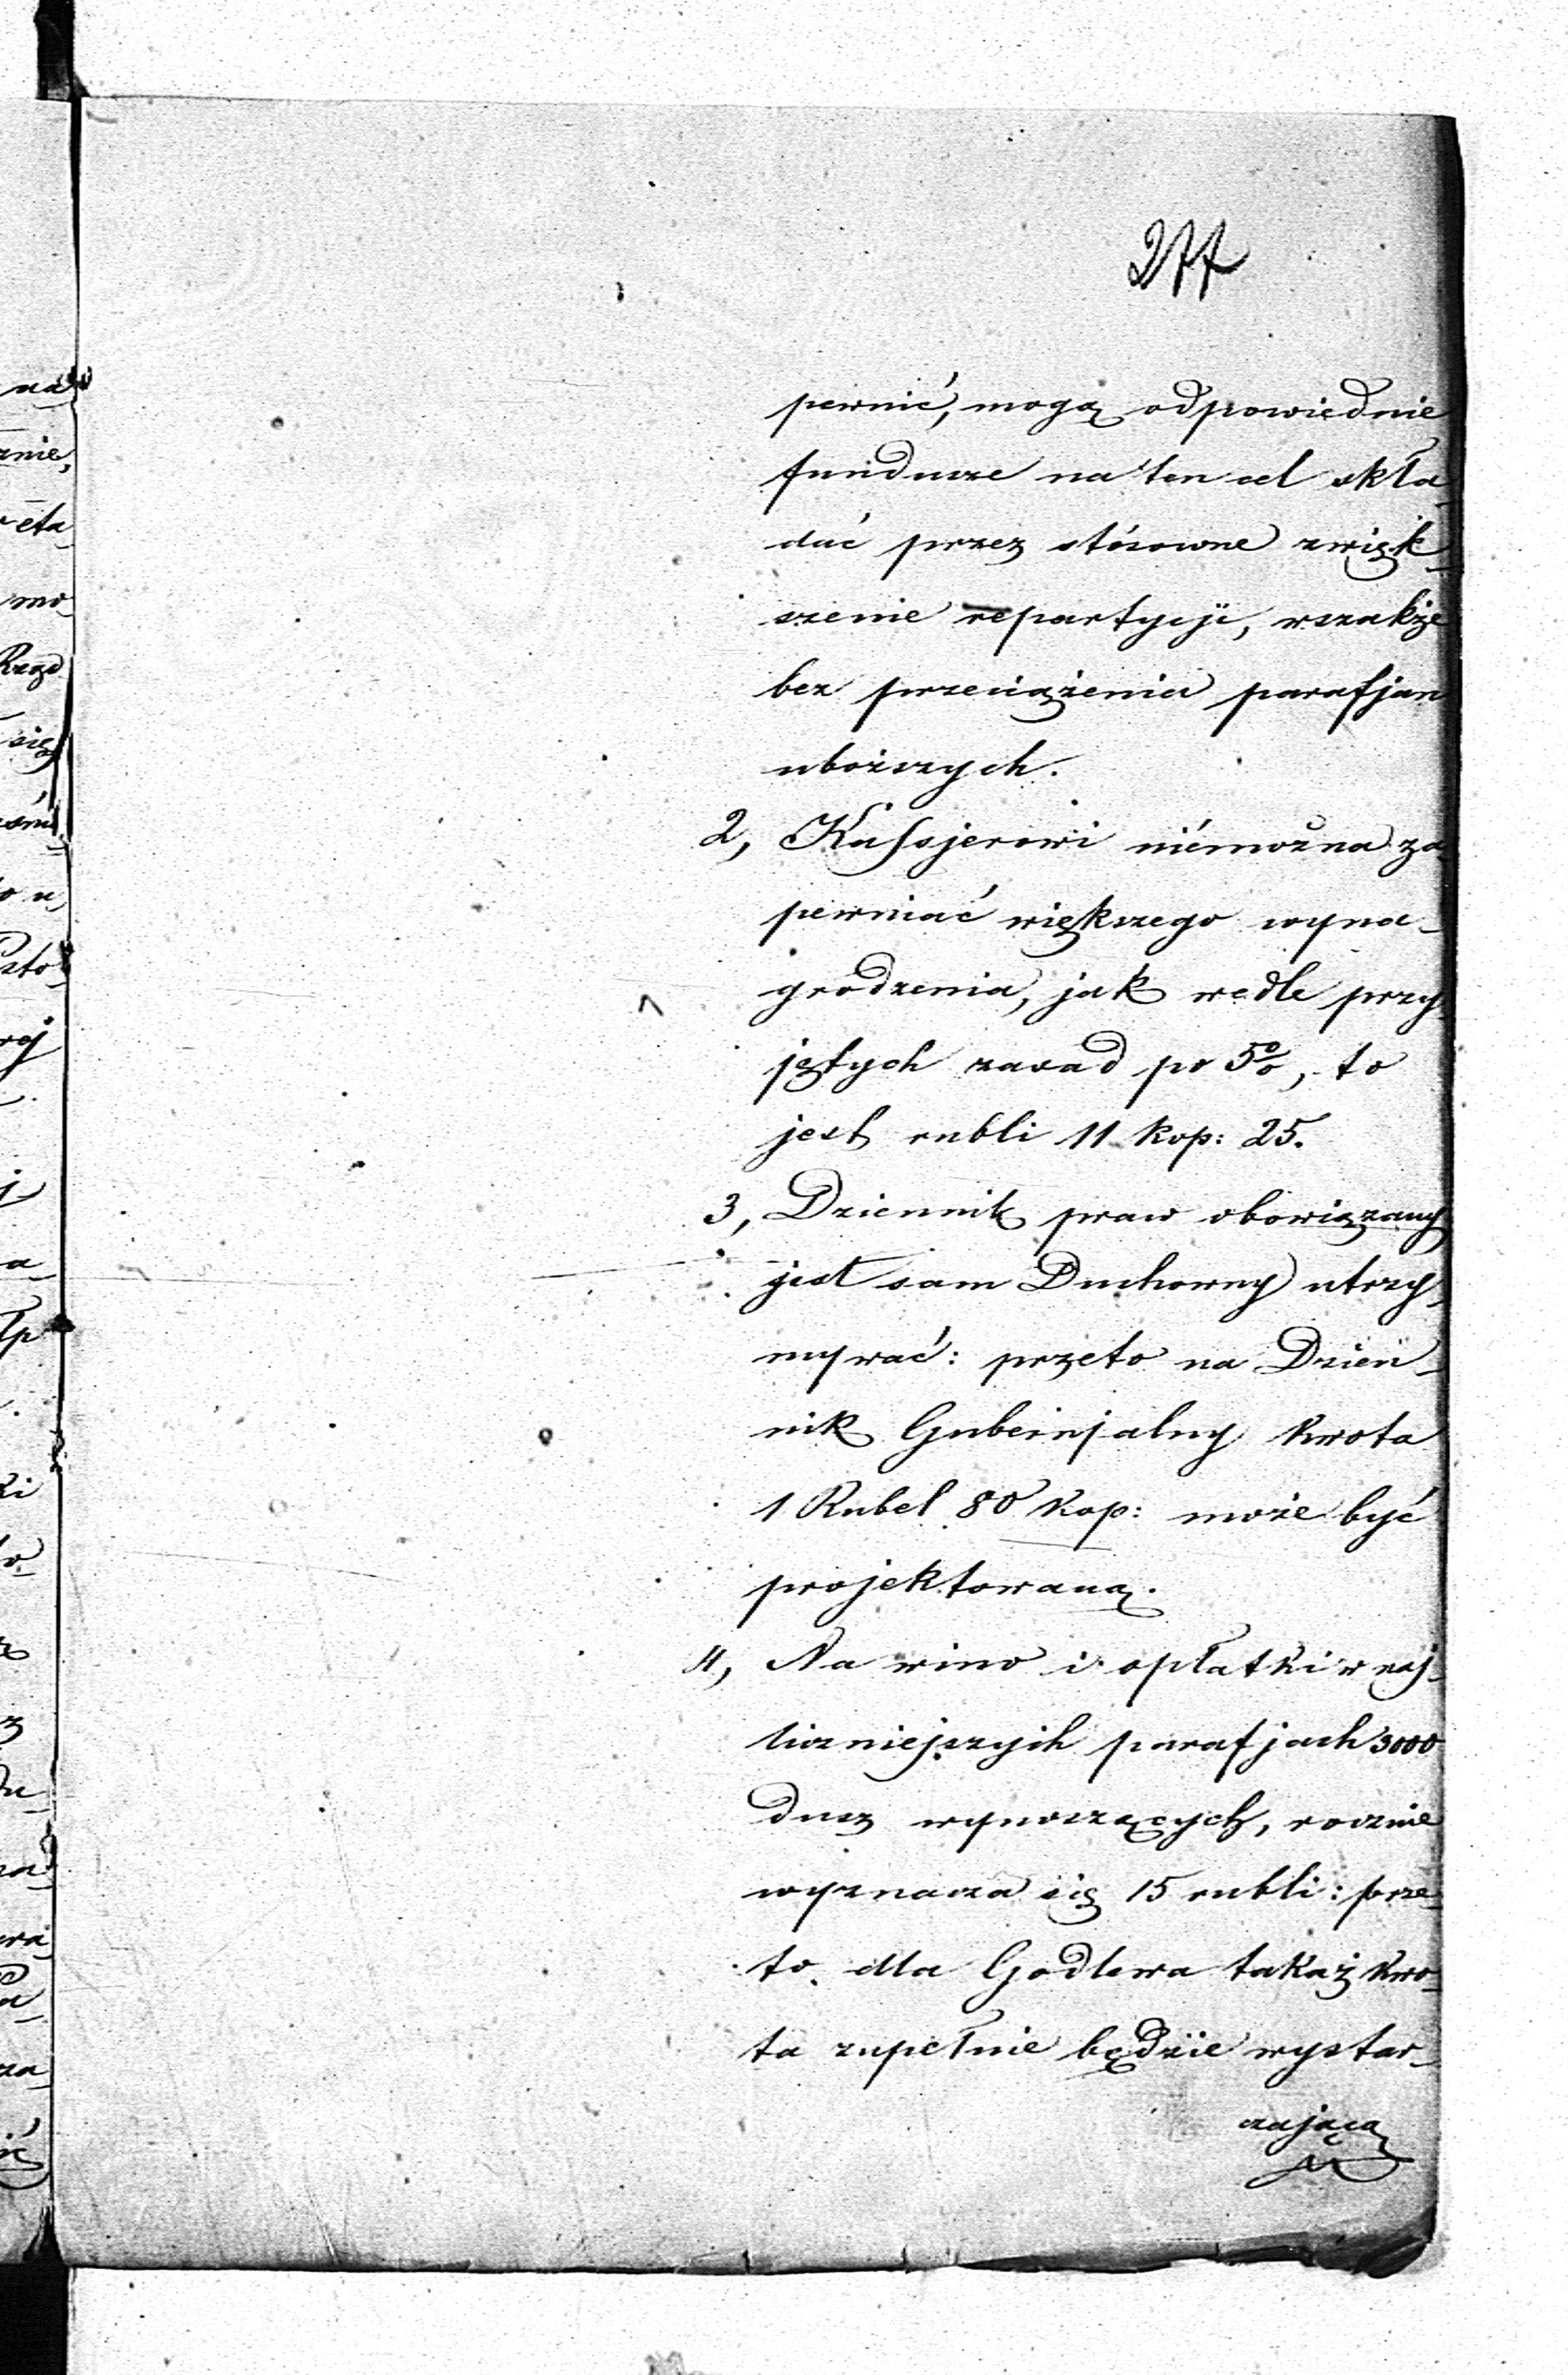 277
pewnić, mogą odpowiednie
fundusze na ten cel skła-
dać przez stósowne zwięk-
szenie repartycji, wszakże
bez przeciążenia parafjan
uboższych.
2, Kassjerowi niemożna za-
pewniać większego wyna-
grodzenia, jak wedle przy-
jętych zasad po 5%, to
jest rubli 11 kop: 25.
3, Dziennik praw obowiązany
jest sam Duchowny utrzy-
mywać: przeto na Dzien-
nik Gubernjalny kwota
1 Rubel 80 kop: może być
projektowaną.
4, Na wino i opłatki w naj-
liczniejszych parafjach 3000
dusz wynoszących, rocznie
wyznacza się 15 rubli: prze-
to dla Godlewa takaż kwo-
ta zupełnie będzie wystar-
czającą